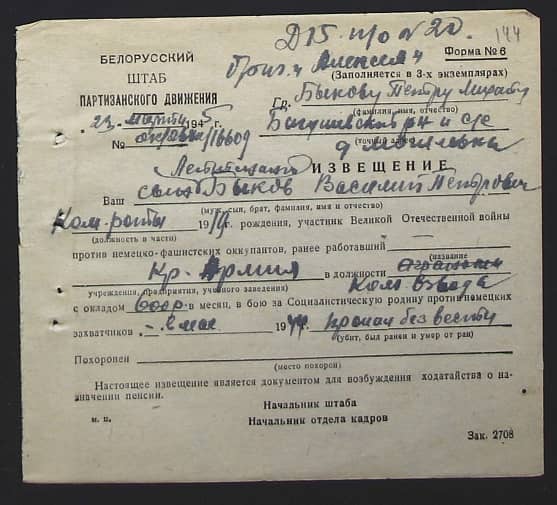 Д15 п/о № 20.
144
БЕЛОРУССКИЙ
ШТАБ
ПАРТИЗАНСКОГО ДВИЖЕНИЯ
Форма № 6
(Заполняется в 3-х экземплярах)
Гр. Быкову Петру
(фамилия, имя, отчество)
23 марта 1945 г.
№
Богушевский р-н
(точный адрес)
ИЗВЕЩЕНИЕ
Ваш сын Быков Василий Петрович
(муж, сын, брат, фамилия, имя и отчество)
Ком. роты 1914 рождения, участник Великой Отечественной войны
(должность в части)
против немецко-фашистских оккупантов, ранее работавший
(название
Кр. Армия в должности
учреждения, предприятия, учебного заведения)
Ком. взвода
с окладом 600р. в месяц, в бою за Социалистическую родину против немецких
захватчиков „-" в мае 1944 пропал без вести
(убит, был ранен и умер от ран)
Похоронен
(место похорон)
Настоящее извещение является документом для возбуждения ходатайства о на-
значении пенсии.
Начальник штаба
м. п.
Начальник отдела кадров
Зак. 2708